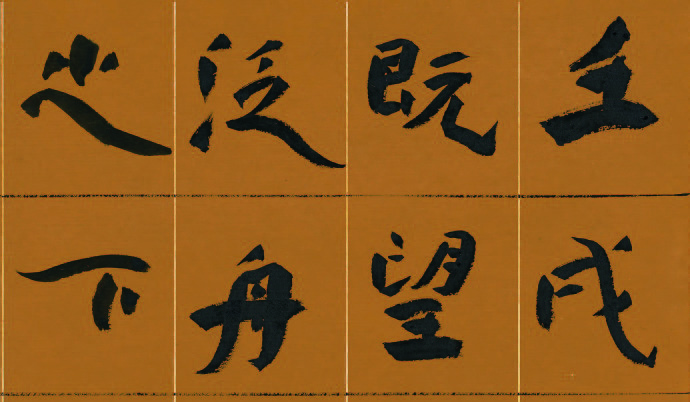 壬戌
既望
泛舟
之下